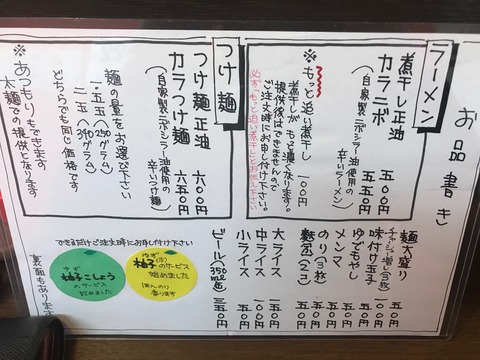 お品書き
ラーメン
煮干し正油 五〇〇
カラニボ 五五〇
(自家製ニボシラー油使用の
辛いラーメン)
※もっと追い煮干し 一〇〇
煮干しがもっと濃くなります。
提供後はできませんので
ご注文時にお申し付け下さい。
必ず"もっと追い煮干し"とお伝え下さい
つけ麺
つけ麺正油 六〇〇
カラつけ麺 六五〇
(自家製ニボシラー油使用の
辛いつけ麺)
麺の量をお選び下さい
一・五玉(250グラム)
二玉(340グラム)
どちらでも同じ価格です
※あつもりもできます
太麺での提供となります
麺大盛り 五〇
チャーシュー増し(3枚) 一五〇
味付け玉子 一〇〇
ゆでもやし 五〇
メンマ 五〇
のり(3枚) 五〇
大ライス 一五〇
中ライス 一〇〇
小ライス 五〇
ビール(350ml缶) 三五〇
できるだけご注文時にお申し付け下さい
ゆず
柚子(汁)
のサービス
始めました
ほんのり
香ります
ゆず
柚子こしょう
のサービス
始めました
裏面もあります